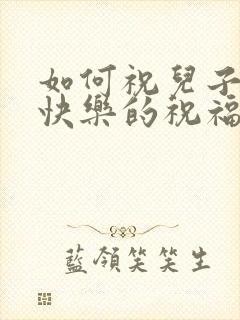 如何祝兒子
快樂的祝福
藍領笑笑生